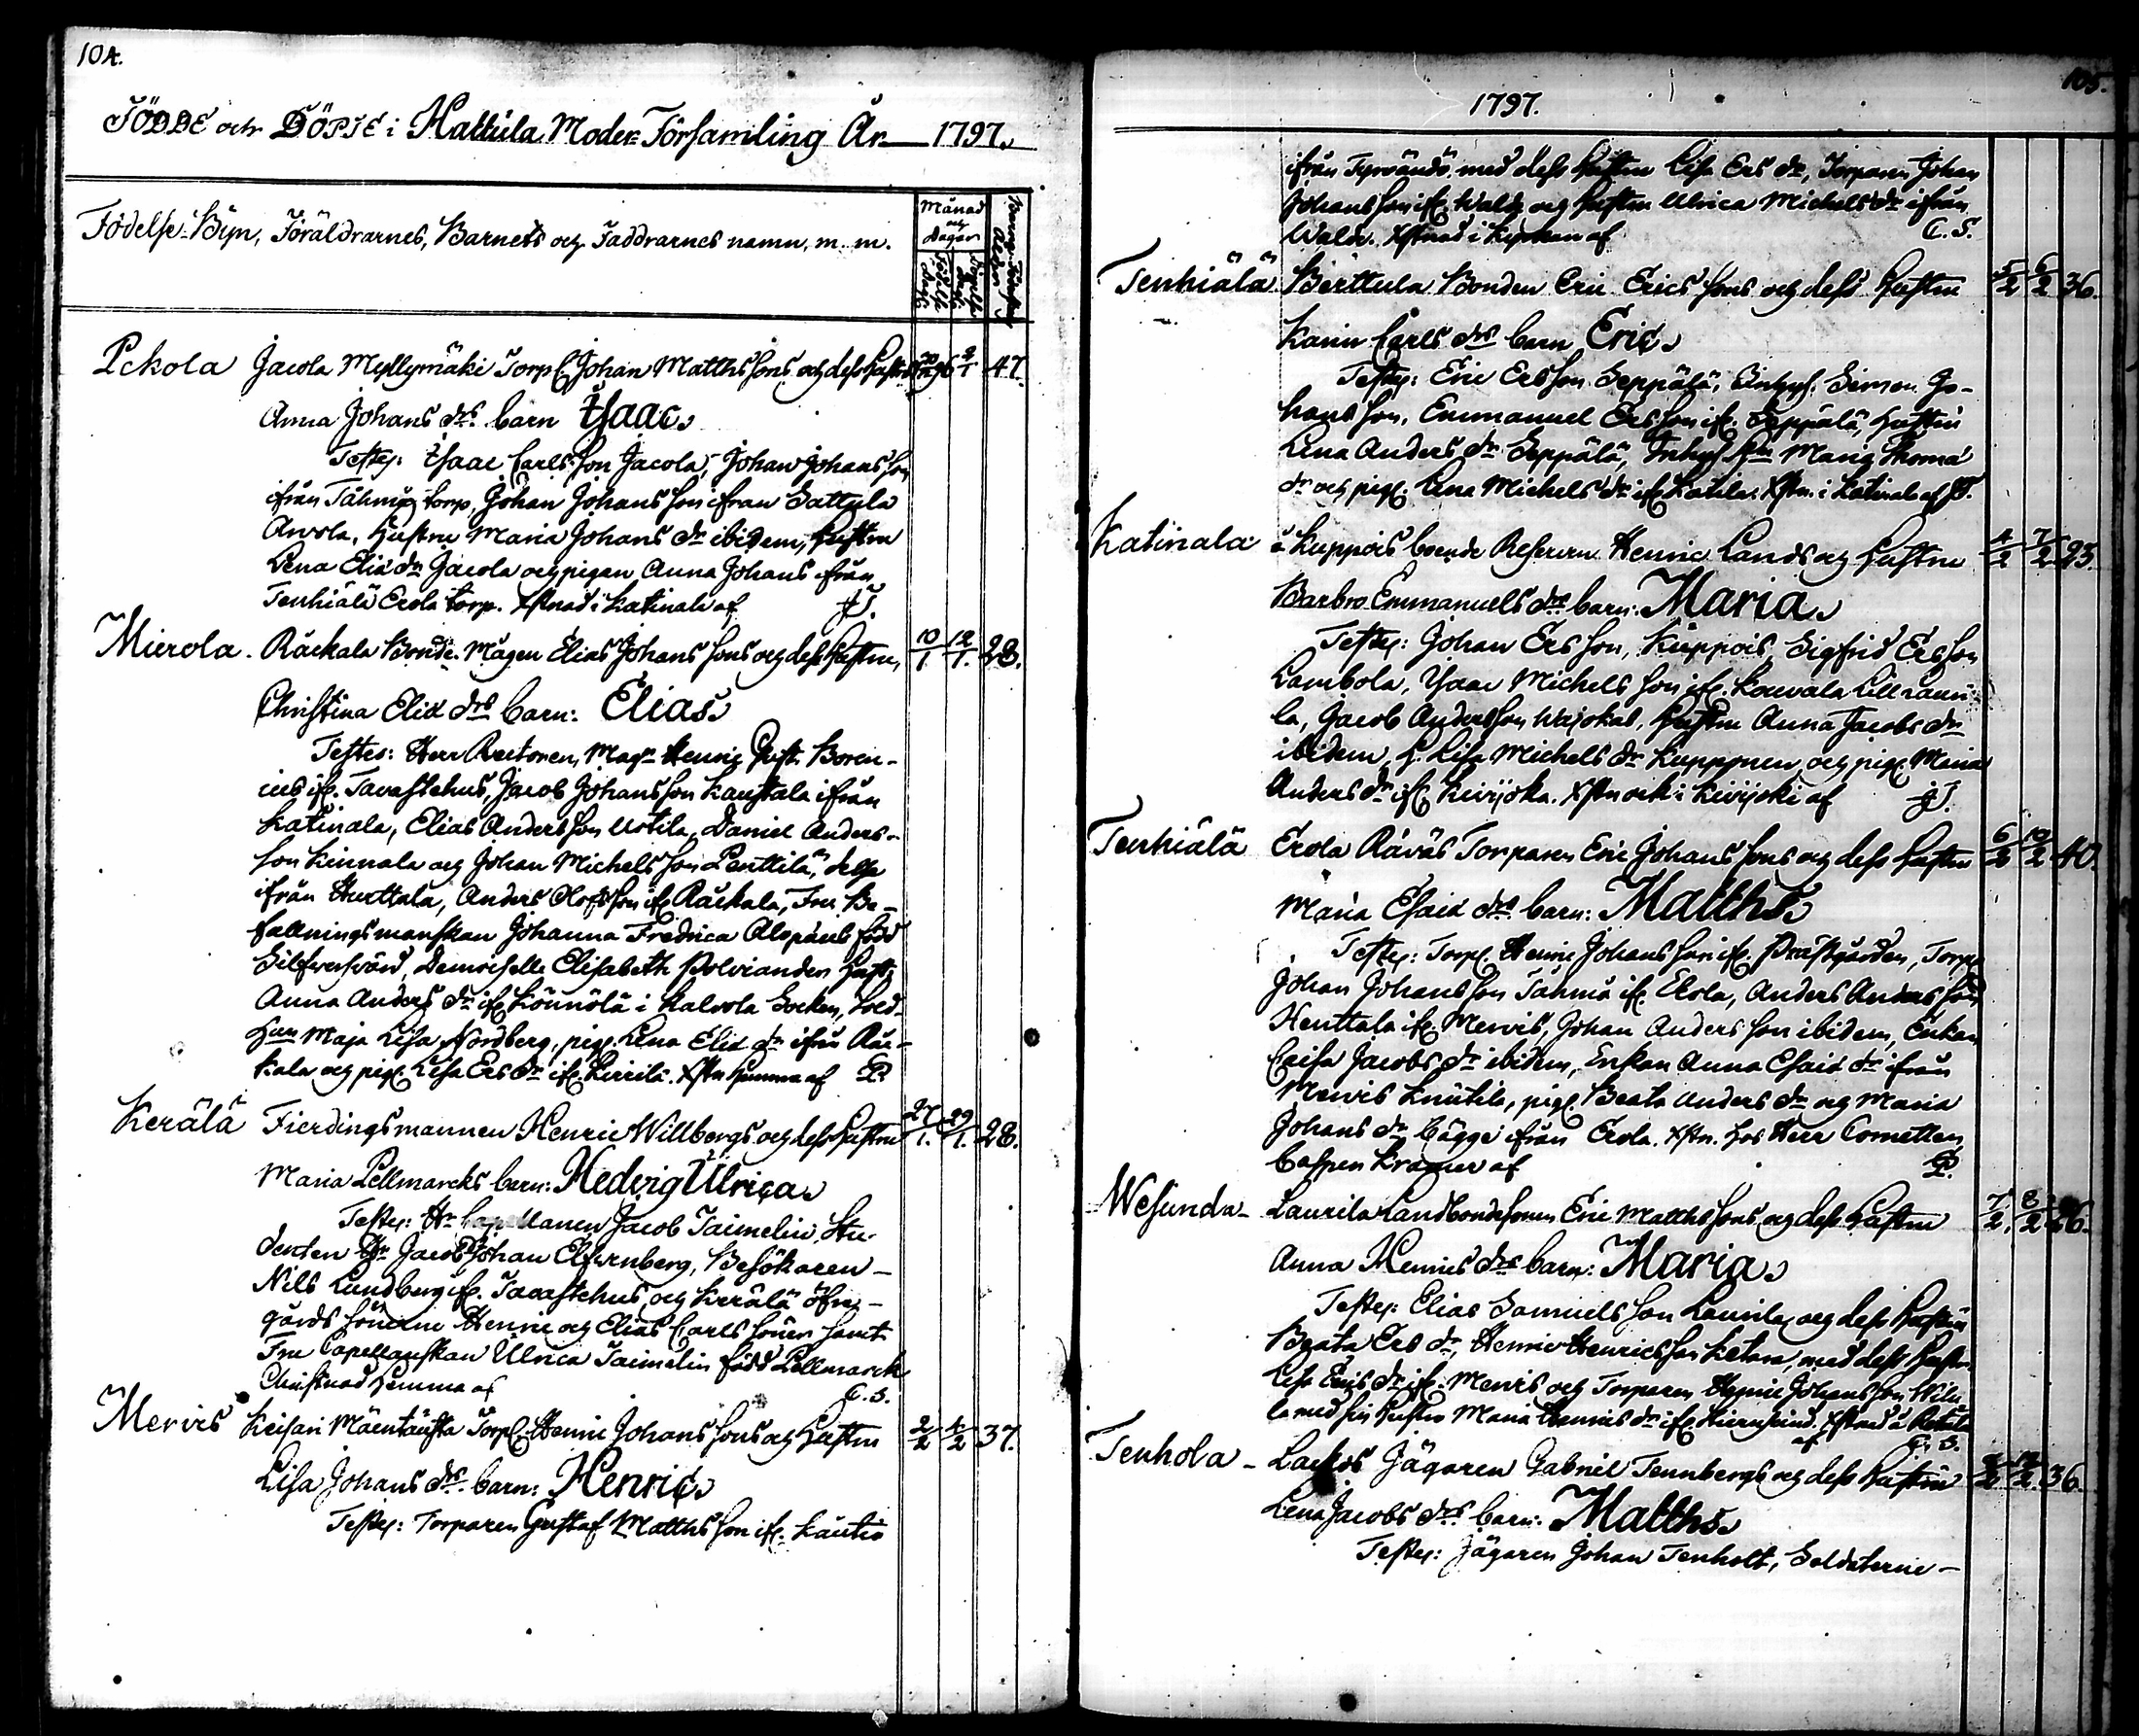 104.
FÖDDE och DÖPTE i Hattula Moder Församling År 1797.
Födelse-Byn, Föräldrarnes, Barnets och Faddrarnes namn, m. m.
Månad och Dagar
Födelse Dagen
Barnaföderskans Ålder
Pekola Jacola Myllymäki Torp. Johan Matths sons och dess hustru 47.
Anna Johans drs barn Isaac.
Testes: Isaac Carls son Jacola, Johan Johans son
ifrån Tähniä torp, Johan Johans son ifrån Sattula
Arvola, hustru Maria Johans dr ibidem, hustru
Lena Eliæ dr Jacola och pigan Anna Johans ifrån
Tenhiälä Erola torp. Xstnad i Katinala af JT.
Mierola. Räckala Bonde-Mågen Elias Johans sons och dess hustru, 10/1 12/1. 28.
Christina Eliæ drs barn: Elias.
Testes: Herr Rectoren, Magr Henric Gust. Boren-
ius ifr. Tavastehus, Jacob Johansson Kaustala ifrån
Katinala, Elias Andersson Uotila, Daniel Anders-
son Kinnala och Johan Michelsson Penttilä, desse
ifrån Hurttala, Anders Olofsson ifr. Räckala, Fru Be-
fallningsmanskan Johanna Fredrica Alopæus född
Silfversvärd, Demoiselle Elisabeth Polviander, hust.
Anna Anders dr ifr. Könnölä i Kalvola Socken, Sold.
hun Maja Lisa Nordberg, pig. Lena Eliæ dr ifrån Räc-
kala och pig. Lisa Ers dr ifr. Lirrilä. Xstn hemma af P.
Kerälä Fierdingsmannen Henric Willbergs och dess hustru 27/1. 29/1. 28.
Maria Pellmarcks barn: Hedvig Ulrica.
Testes: Hr Capellanen Jacob Taimelin, Stu-
denten Hr Jacob Johan Elfvenberg, Besökaren
Nils Lundberg ifr. Tavastehus, och Kerälä öfre-
gårds sönerne Henric och Elias Carls söner samt
Fru Capellanskan Ulrica Taimelin född Pellmarck
Christnad hemma af C. S.
Mervis Keisari Mäentausta Torp. Henric Johans sons och hustru 2/2 4/2 37.
Lisa Johans drs barn: Henric.
Testes: Torparen Gustaf Matths son ifr. Kautio
105.
1797.
ifrån Tyrvändö med dess hustru Lisa Ers dr, Torparen Johan
Johansson ifr. Walda och hustru Ulrica Michels dr ifrån
Walda. Xstnad i Lepman af C. S.
Tenhiälä Berttula Bonden Eric Erics sons och dess hustru 5/2 6/2 36.
Karin Carls drs barn Eric.
Testes: Eric Ersson Seppälä, Inhys. Simon Jo-
hans son, Emmanuel Ersson ifr. Seppälä, hustru
Lena Anders dr Seppälä, Inhys hu Marg. Thoma
dr och pig. Lena Michels dr ifr. Katila. Xstn. i Katinala af JT.
Katinala å Kuppois boende Reserven Henric Lands och hustru 4/2 7/2 23.
Barbro Emmanuels drs barn: Maria.
Testes: Johan Ersson, Kuppois, Sigfrid Ersson
Lambola, Isaac Michels son ifr. Kouvala Lill Lauri-
la, Jacob Andersson Wajokas, hustru Anna Jacobs dr
ibidem, h. Lisa Michels dr Kupponen och pig. Maria
Anders dr ifr. Kivijoka. Xstn ock i Kivijoki af JT.
Tenhiälä Erola Räväs Torparen Eric Johans sons och dess hustru 6/2 10/2 40.
Maria Esaiæ drs barn: Matths.
Testes: Torp. Henric Johans son ifr. Prästgården, Torp.
Johan Johansson Tähniä ifr. Erola, Anders Anders son
Henttala ifr. Mervis, Johan Anders son ibidem, Enkan
Caisa Jacobs dr ibidem, Enkan Anna Esaiæ dr ifrån
Mervis Knutila, pig. Beata Anders dr och Maria
Johans dr bägge ifrån Erola. Xstn. hos Herr Cornetten
Casper Kramer af P.
Wesunda Laurila Landbondesonen Eric Matths sons och dess hustru 7/2. 8/2 26.
Anna Henrics drs barn: Maria.
Testes: Elias Samuels son Laurila och dess hustru
Beata Ers dr, Henric Henricsson Ketara, med dess hustru
Lisa Erics dr ifr. Mervis och Torparen Henric Johansson Wilu-
la med sin hustru Maria Henrics dr ifr. Xstnad å Retula
af C. S.
Tenhola Lackos Jägaren Gabriel Tennbergs och dess hustru 36.
Lena Jacobs drs barn: Matths.
Testes: Jägaren Johan Tenholt, Soldaterne